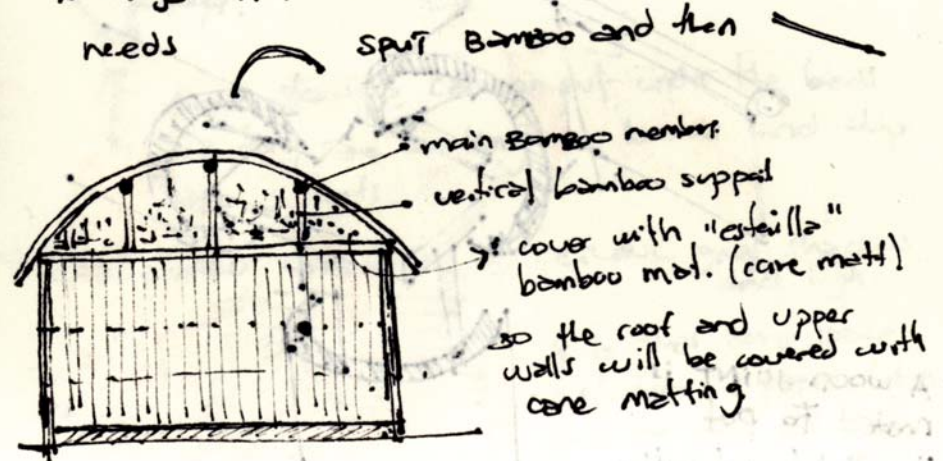 needs split Bamboo and then
main Bamboo members
vertical bamboo support
cover with "esterilla"
bamboo mat. (cane matt)
so the roof and upper
walls will be covered with
cane matting
A wood